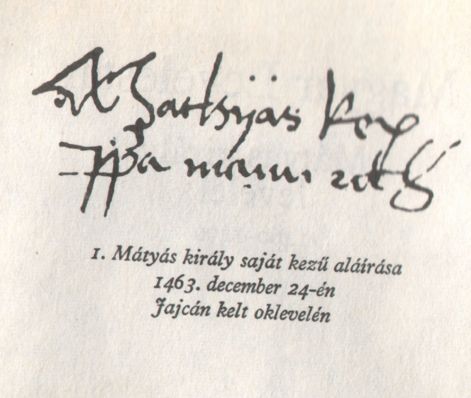 Mathyas Rex
ppa manu
1. Mátyás király saját kezű aláírása
1463. december 24-én
Jajcán kelt oklevelén